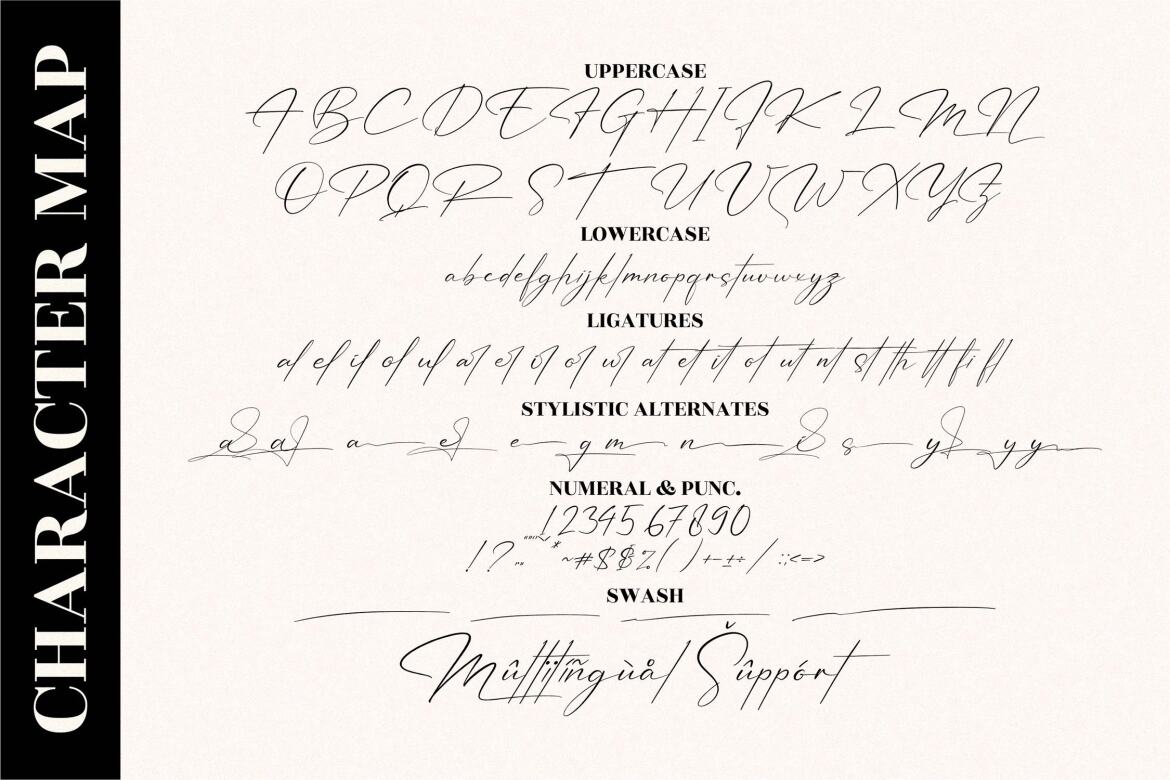 CHARACTER MAP
UPPERCASE
ABCDEFGHIJKLMN
OPQRSTUVWXYZ
LOWERCASE
abcdefghijklmnopqrstuvwxyz
LIGATURES
al el il ol ul at et it ot ut at et it ot ut nt st th tt fi fl
STYLISTIC ALTERNATES
a a a e e g m n i s y y y
NUMERAL & PUNC.
1234567890
SWASH
Mûltïlîñgùål Šûppórt